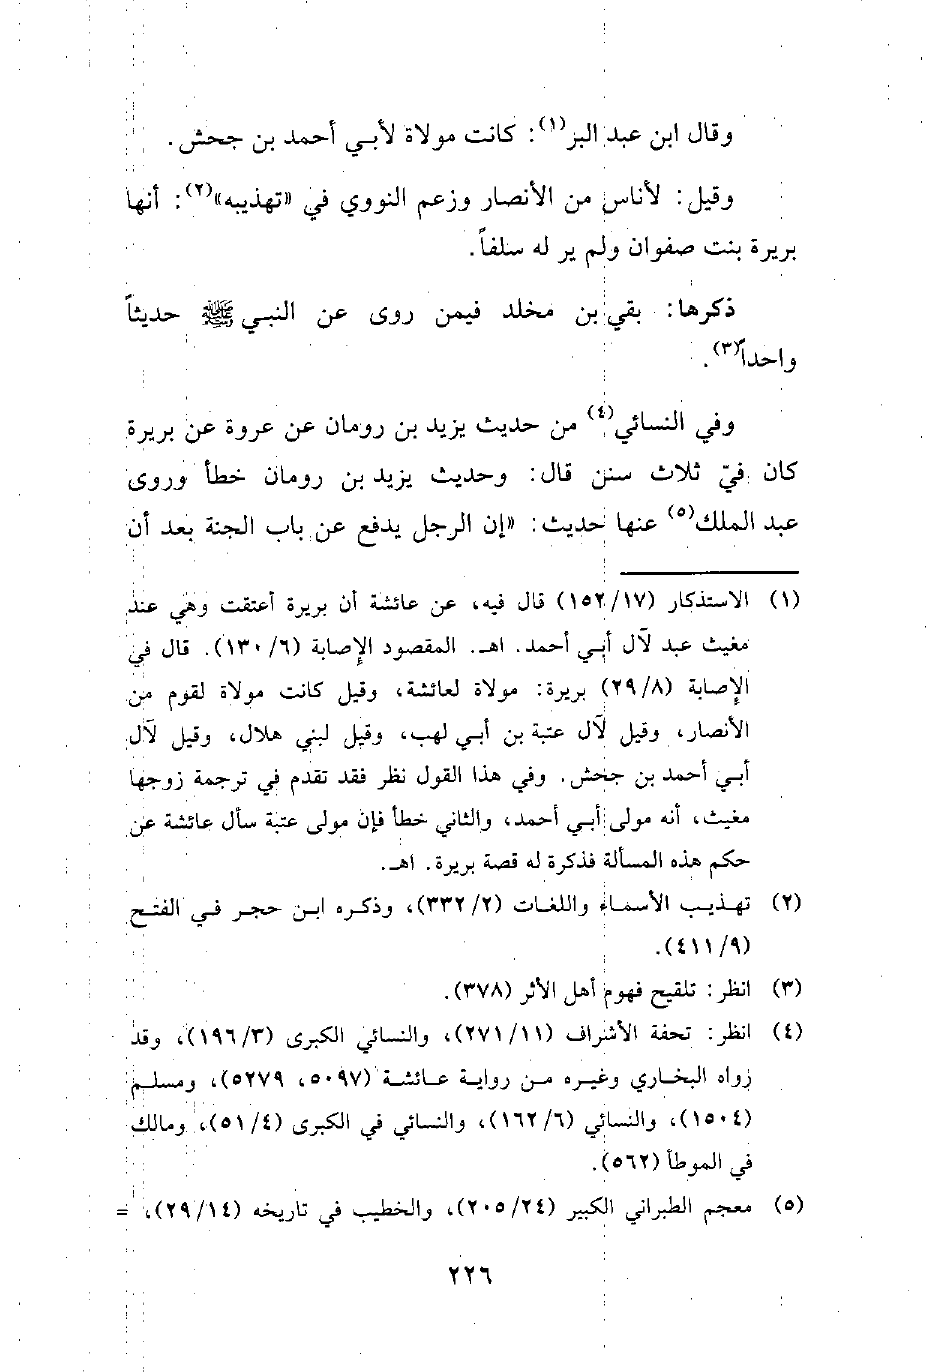 وقال ابن عبد البر(١): كانت مولاة لأبي أحمد بن جحش.
وقيل: لأناس من الأنصار وزعم النووي في «تهذيبه»(٢): أنها
بريرة بنت صفوان ولم ير له سلفاً.
ذكرها: بقي بن مخلد فيمن روى عن النبي ﷺ حديثاً
واحداً(٣).
وفي النسائي(٤) من حديث يزيد بن رومان عن عروة عن بريرة
كان فيّ ثلاث سنن قال: وحديث يزيد بن رومان خطأ وروى
عبد الملك(٥) عنها حديث: «إن الرجل يدفع عن باب الجنة بعد أن
(١) الاستذكار (١٥٢/١٧) قال فيه، عن عائشة أن بريرة أعتقت وهي عند
مغيث عبد لآل أبي أحمد. اهـ. المقصود الإصابة (١٣٠/٦). قال في
الإصابة (٢٩/٨) بريرة: مولاة لعائشة، وقيل كانت مولاة لقوم من
الأنصار، وقيل لآل عتبة بن أبي لهب، وقيل لبني هلال، وقيل لآل
أبي أحمد بن جحش. وفي هذا القول نظر فقد تقدم في ترجمة زوجها
مغيث، أنه مولى أبي أحمد، والثاني خطأ فإن مولى عتبة سأل عائشة عن
حكم هذه المسألة فذكرة له قصة بريرة. اهـ.
(٢) تهذيب الأسماء واللغات (٣٣٢/٢)، وذكره ابن حجر في الفتح
(٤١١/٩).
(٣) انظر: تلقيح فهوم أهل الأثر (٣٧٨).
(٤) انظر: تحفة الأشراف (٢٧١/١١)، والنسائي الكبرى (١٩٦/٣)، وقد
رواه البخاري وغيره من رواية عائشة (٥٠٩٧، ٥٢٧٩)، ومسلم
(١٥٠٤)، والنسائي (١٦٢/٦)، والنسائي في الكبرى (٥١/٤)، ومالك
في الموطأ (٥٦٢).
(٥) معجم الطبراني الكبير (٢٠٥/٢٤)، والخطيب في تاريخه (٢٩/١٤)، =
٢٢٦